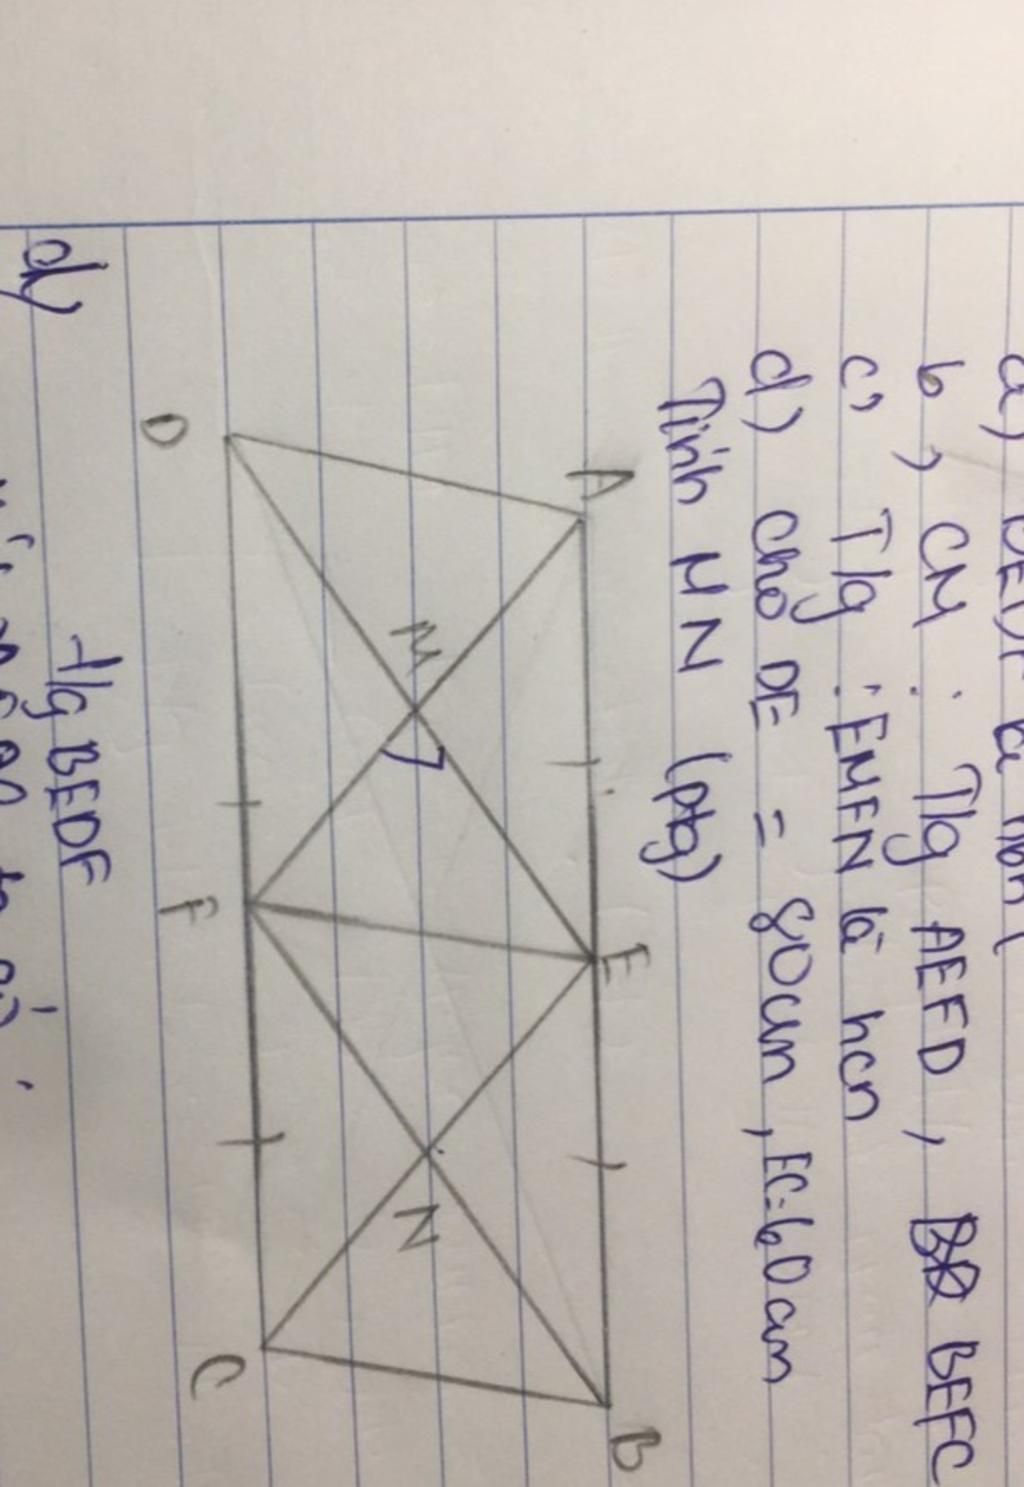 a) BEDF là hbh
b, CM : T/g AEFD, BEFC
c, T/g : EMFN là hcn
d) cho DE = 80cm, EC=60cm
Tính MN (ptg)
A
E
B
M
N
D
F
C
t/g BEDF
d,